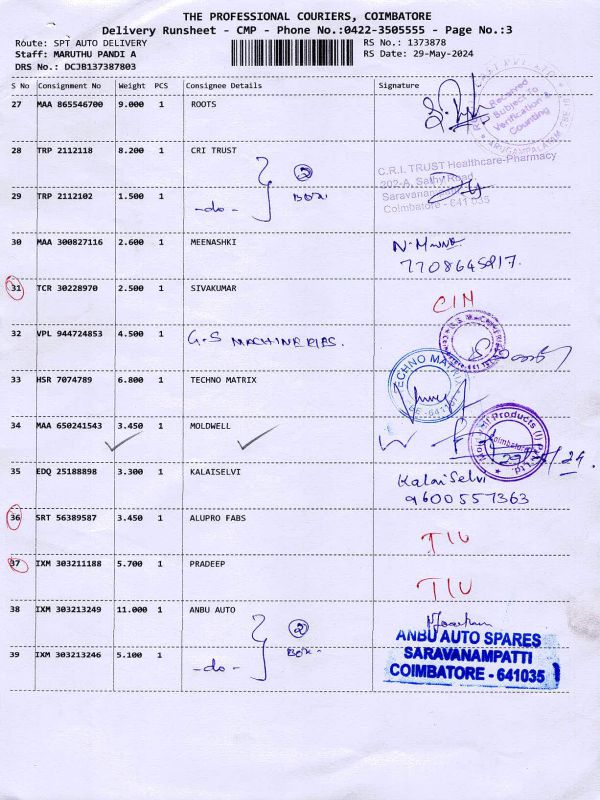 THE PROFESSIONAL COURIERS, COIMBATORE
Delivery Runsheet - CMP - Phone No.:0422-3505555 - Page No.:3
Route: SPT AUTO DELIVERY RS No.: 1373878
Staff: MARUTHU PANDI A RS Date: 29-May-2024
DRS No.: DCJB137387803
S No Consignment No Weight PCS Consignee Details Signature
27 MAA 865546700 9.000 1 ROOTS
Received
Subject to
Verification &
Counting
28 TRP 2112118 8.200 1 CRI TRUST
C.R.I. TRUST Healthcare-Pharmacy
202-A, Sathy Road,
Saravanampatti
Coimbatore - 641 035
29 TRP 2112102 1.500 1 -do- } 2 BOX
30 MAA 300827116 2.600 1 MEENASHKI
31 TCR 30228970 2.500 1 SIVAKUMAR CIN
32 VPL 944724853 4.500 1 G.S MACHINERIES.
33 HSR 7074789 6.800 1 TECHNO MATRIX
TECHNO MATRIX
34 MAA 650241543 3.450 1 MOLDWELL
products (I) Pvt. Ltd.
Coimbatore
35 EDQ 25188898 3.300 1 KALAISELVI
KalaiSelvi
9600557363
36 SRT 56389587 3.450 1 ALUPRO FABS TIU
37 IXM 303211188 5.700 1 PRADEEP TIU
38 IXM 303213249 11.000 1 ANBU AUTO
39 IXM 303213246 5.100 1 -do- } 2 BOX-
ANBU AUTO SPARES
SARAVANAMPATTI
COIMBATORE - 641035